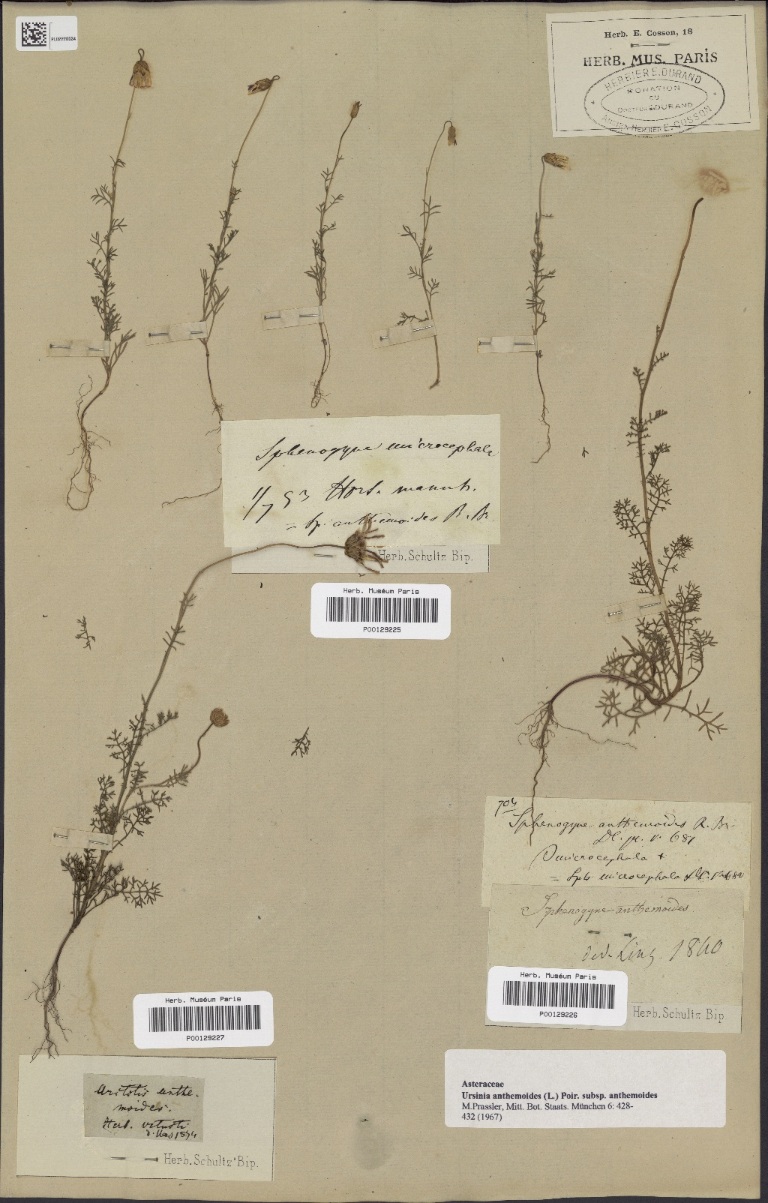 Herb. E. Cosson, 18
HERB. MUS. PARIS
HERBIER E. DURAND
DONATION
DU
DOCTEUR DURAND
ANCIEN HERBIER E. COSSON
Sphenogyne microcephala
11/7 53 Hort. manuh.
= Sp. anthemoides R. Br.
Herb. Schultz Bip.
Herb. Muséum Paris
P00129225
704
Sphenogyne anthemoides R. Br.
DC. pr. n. 681
microcephala
= Sph. microcephala DC. n. 680
Sphenogyne anthemoides
ded. Link 1840
Herb. Muséum Paris
P00129226
Herb. Schultz Bip.
Herb. Muséum Paris
P00129227
Arctotis anthe-
moides.
Herb. vetusti
1834
Herb. Schultz Bip.
Asteraceae
Ursinia anthemoides (L.) Poir. subsp. anthemoides
M.Prassler, Mitt. Bot. Staats. München 6: 428-
432 (1967)